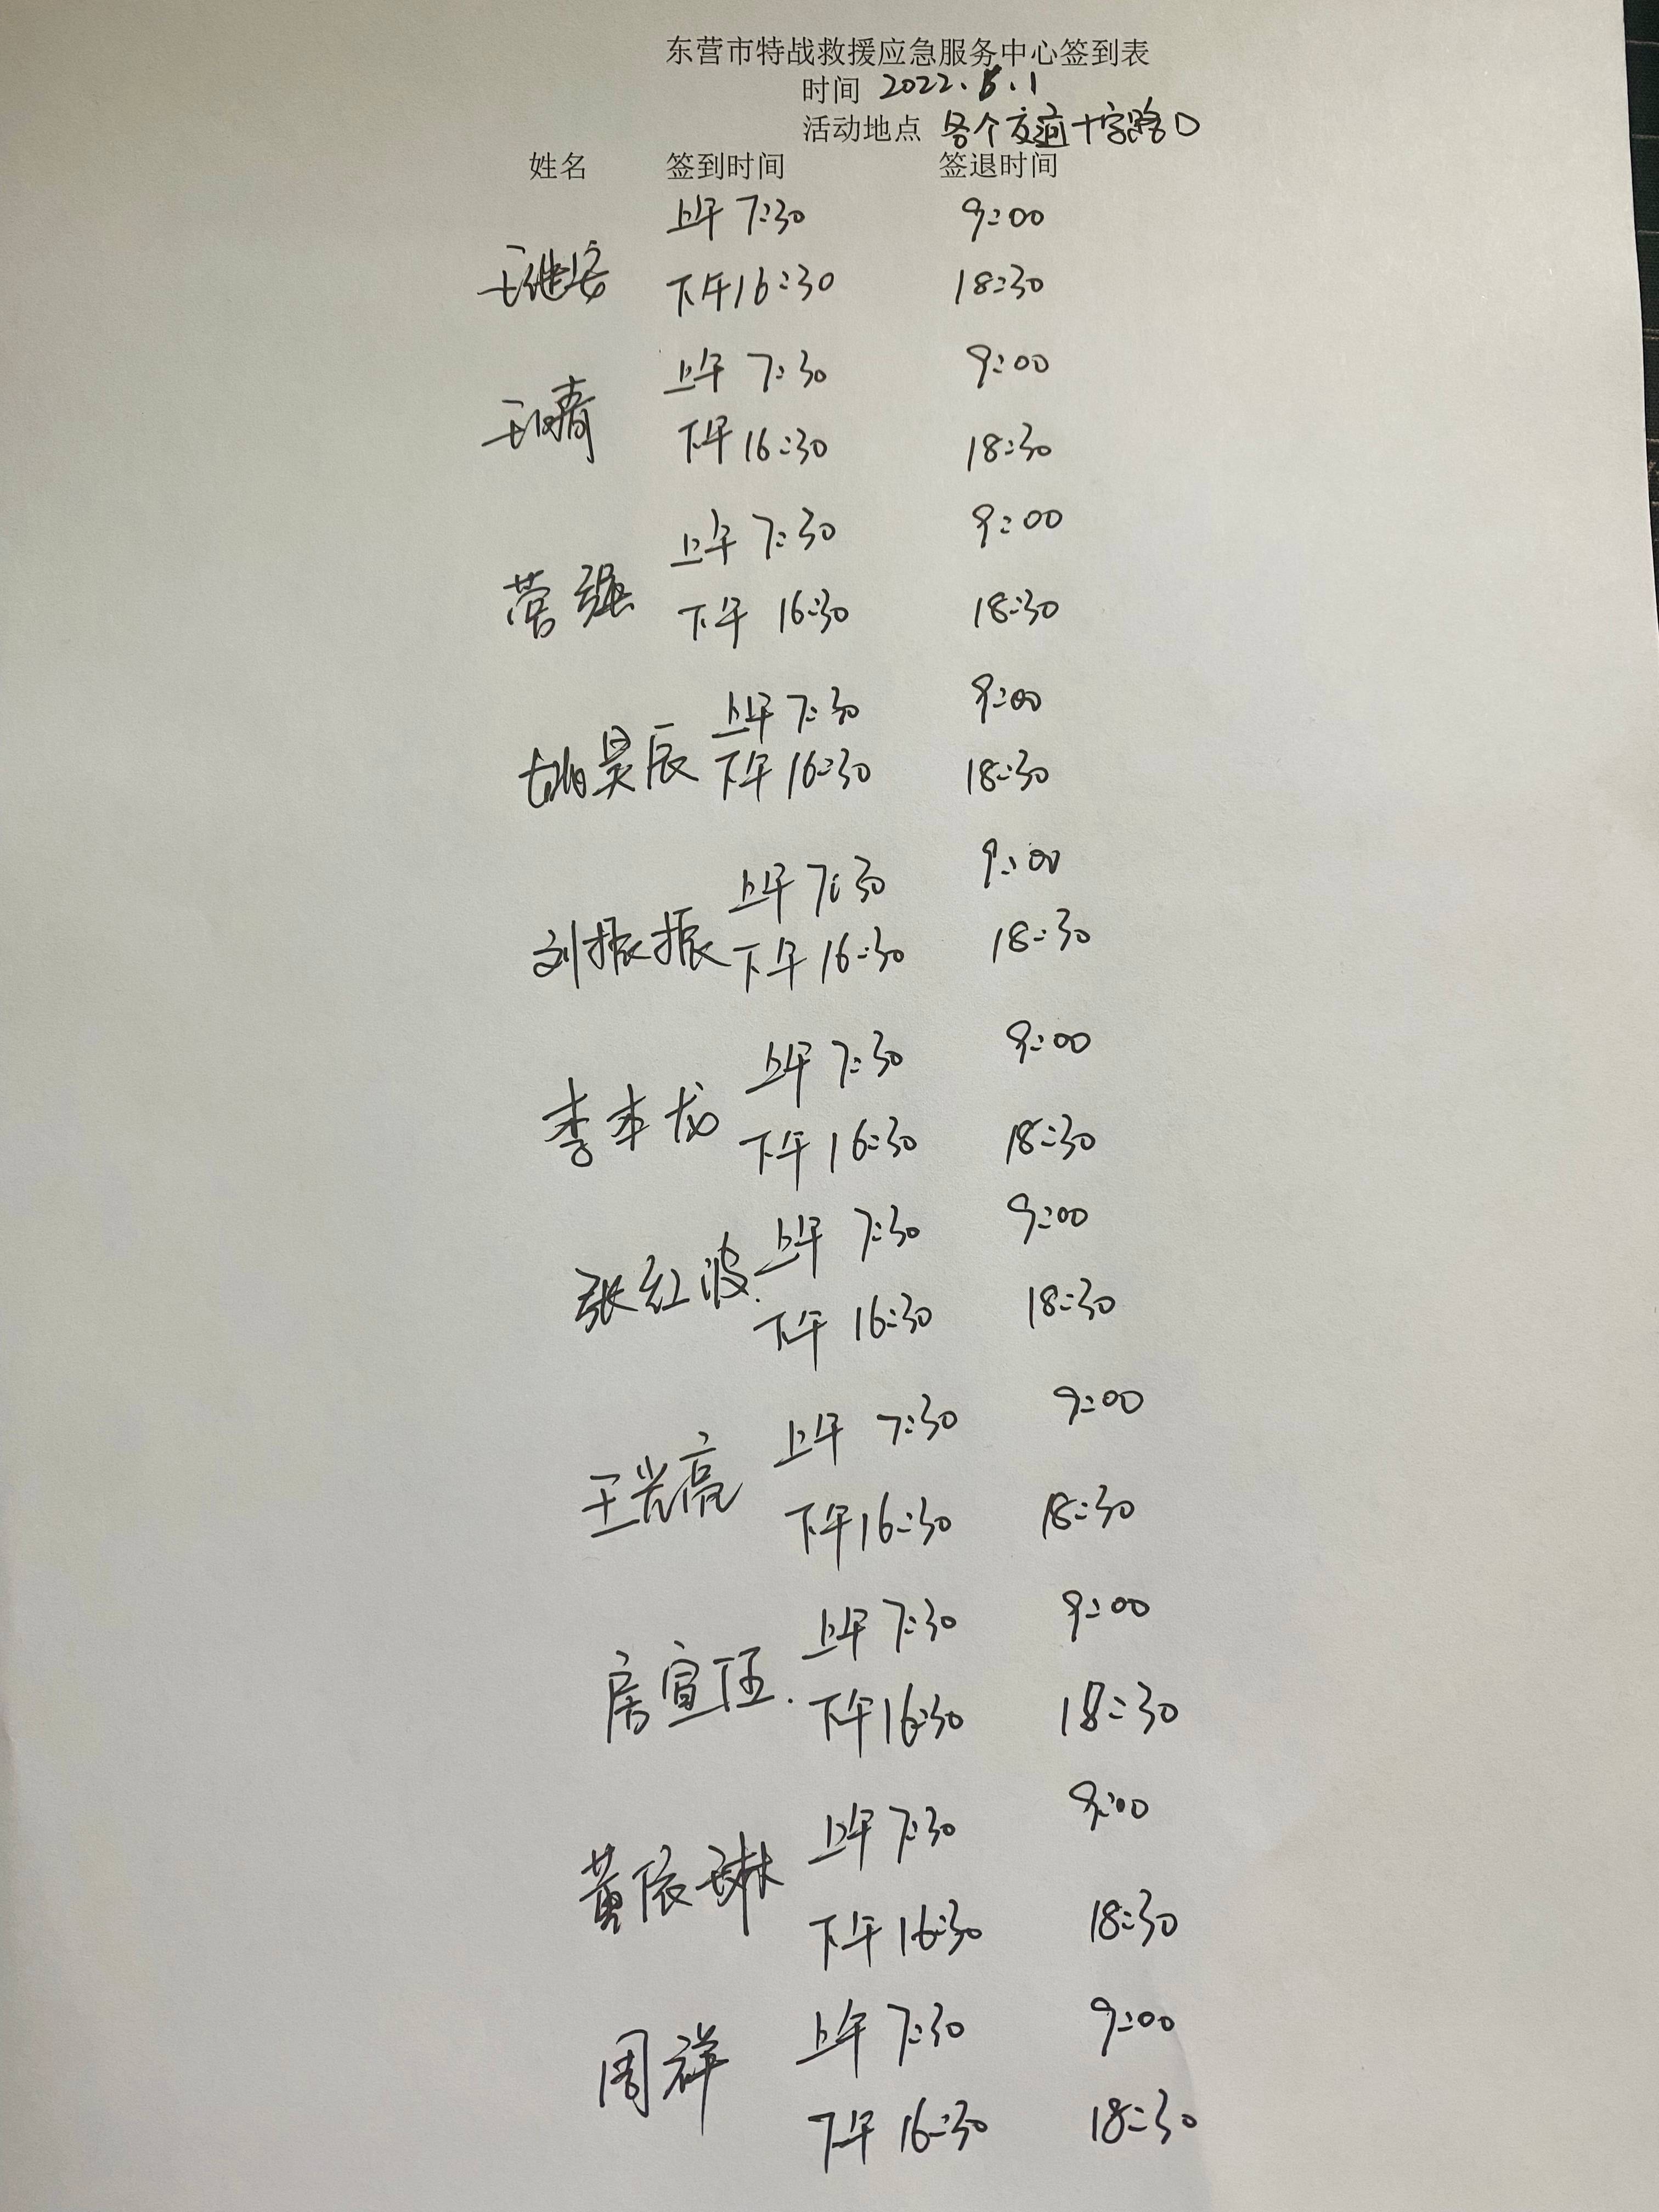 东营市特战救援应急服务中心签到表
时间 2022.5.1
活动地点 各个交通十字路口
姓名 签到时间 签退时间
上午 7:30 9:00
王继安 下午16:30 18:30
上午 7:30 9:00
下午 16:30 18:30
上午 7:30 9:00
营强 下午 16:30 18:30
上午 7:30 9:00
胡昊辰 下午 16:30 18:30
上午 7:30 9:00
刘振振 下午 16:30 18:30
上午 7:30 9:00
李本龙 下午 16:30 18:30
上午 7:30 9:00
张红波 下午 16:30 18:30
上午 7:30 9:00
王光亮 下午16:30 18:30
上午 7:30 9:00
房宣 下午16:30 18:30
上午 7:30 9:00
黄依琳 下午 16:30 18:30
上午 7:30 9:00
周祥 下午 16:30 18:30